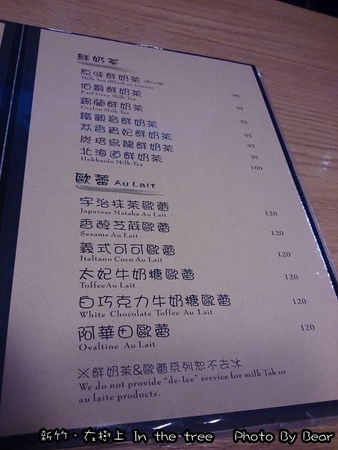 鮮奶茶
原味鮮奶茶
Milk Tea
伯爵鮮奶茶 90
Earl Grey Milk Tea
錫蘭鮮奶茶 95
Ceylon Milk Tea
鐵觀音鮮奶茶 95
荔香貴妃鮮奶茶 95
炭培烏龍鮮奶茶 95
北海道鮮奶茶 100
Hokkaido Milk Tea
歐蕾 Au Lait
宇治抹茶歐蕾 120
Japanese Matsha Au Lait
香醇芝蔴歐蕾 120
Sesame Au Lait
義式可可歐蕾 120
Italiano Coco Au Lait
太妃牛奶糖歐蕾 120
Toffee Au Lait
白巧克力牛奶糖歐蕾 120
White Chocolate Toffee Au Lait
阿華田歐蕾 120
Ovaltine Au Lait
※鮮奶茶&歐蕾系列恕不去冰
We do not provide "de-Ice" service for milk Tak or
au laite products.
新竹·在樹上 In the tree Photo By Bear